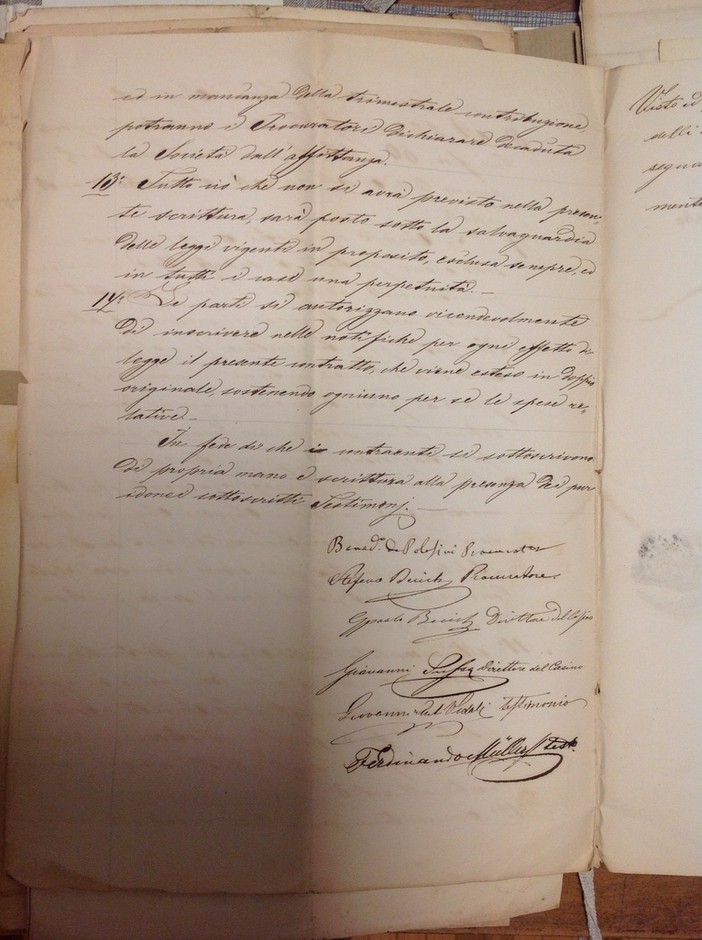 ed in mancanza della trimestrale contribuzione
potranno i Procuratori dichiarare decaduta
la Società dall'affittanza.
13: Tutto ciò che non si avrà previsto nella presen-
te scrittura, sarà posto sotto la salvaguardia
delle leggi vigenti in proposito, esclusa sempre, ed
in tutti i casi una perpetuità.
14: Le parti si autorizzano vicendevolmente
di inscrivere nelle notifiche per ogni effetto di
legge il presente contratto, che viene esteso in doppio
originale, sostenendo ogniuno per sé le spese re-
lative.
In fede di che i contraenti si sottoscrivono
di propria mano e scrittura alla presenza dei pur
idonei sottoscritti Testimonj.
Bened. de Polesini Procurator
Stefano Procuratore
Direttore del Casino
Giovanni Direttore del Casino
Giovanni testimonio
Ferdinando Müller Test.
Visto ed
delli
segu
mente